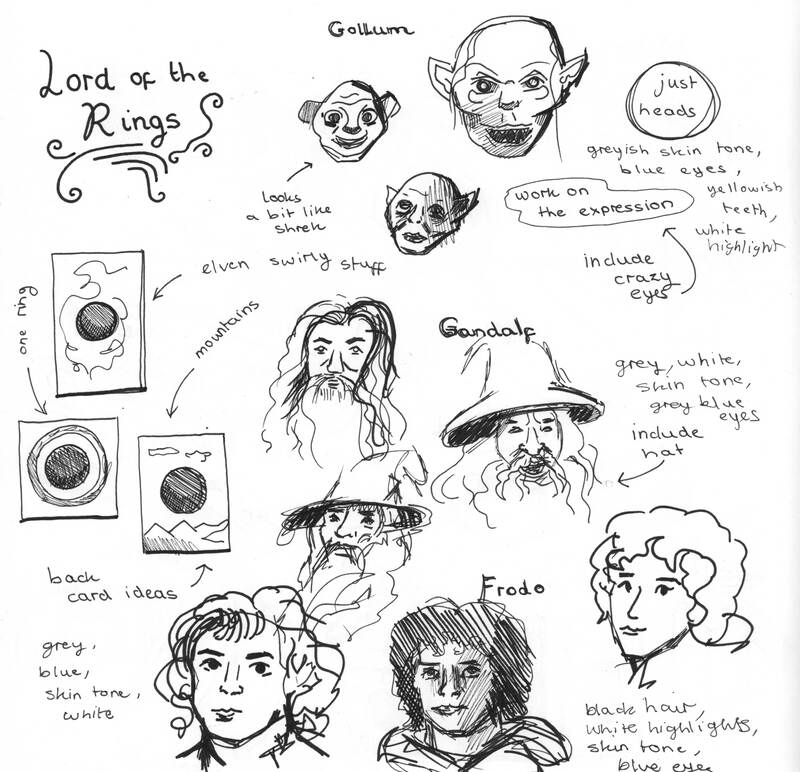 Lord of the
Rings
Gollum
just
heads
greyish skin tone,
blue eyes,
yellowish
teeth,
white
highlight
work on
the expression
include
crazy
eyes
Looks
a bit like
shrek
elven swirly stuff
one ring
mountains
back
card ideas
Gandalf
grey, white,
skin tone,
grey blue
eyes
include
hat
Frodo
grey,
blue,
skin tone,
white
black hair,
white highlights,
skin tone,
blue eyes